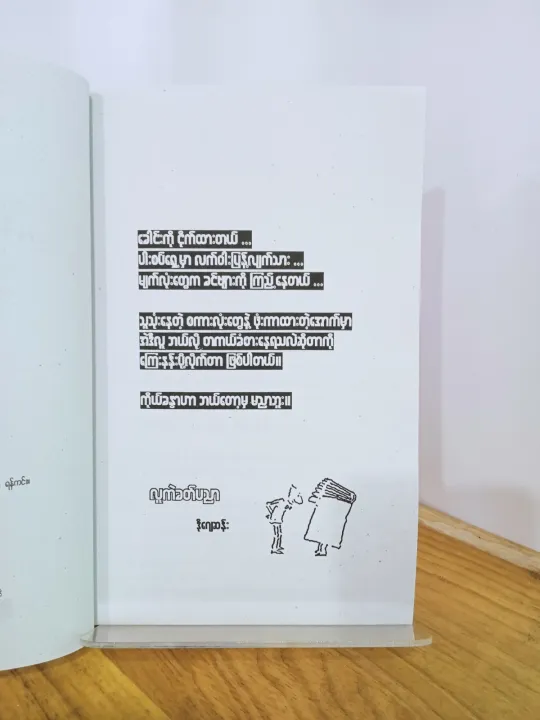 ခေါင်းကို ငိုက်ထားတယ် ...
ပါးစပ်ရှေ့မှာ လက်ဝါးပြန့်လျက်သား ...
မျက်လုံးတွေက ခင်ဗျားကို ကြည့်နေတယ် ...
သူသုံးနေတဲ့ စကားလုံးတွေနဲ့ ဖုံးကာထားတဲ့အောက်မှာ
အဲဒီလူ ဘယ်လို တကယ်ခံစားနေရသလဲဆိုတာကို
ကြေးနန်းပို့လိုက်တာ ဖြစ်ပါတယ်။
ကိုယ်ခန္ဓာဟာ ဘယ်တော့မှ မညာဘူး။
လူကဲခတ်ပညာ
ဒိုးဆန်း
ရန်ကင်း။